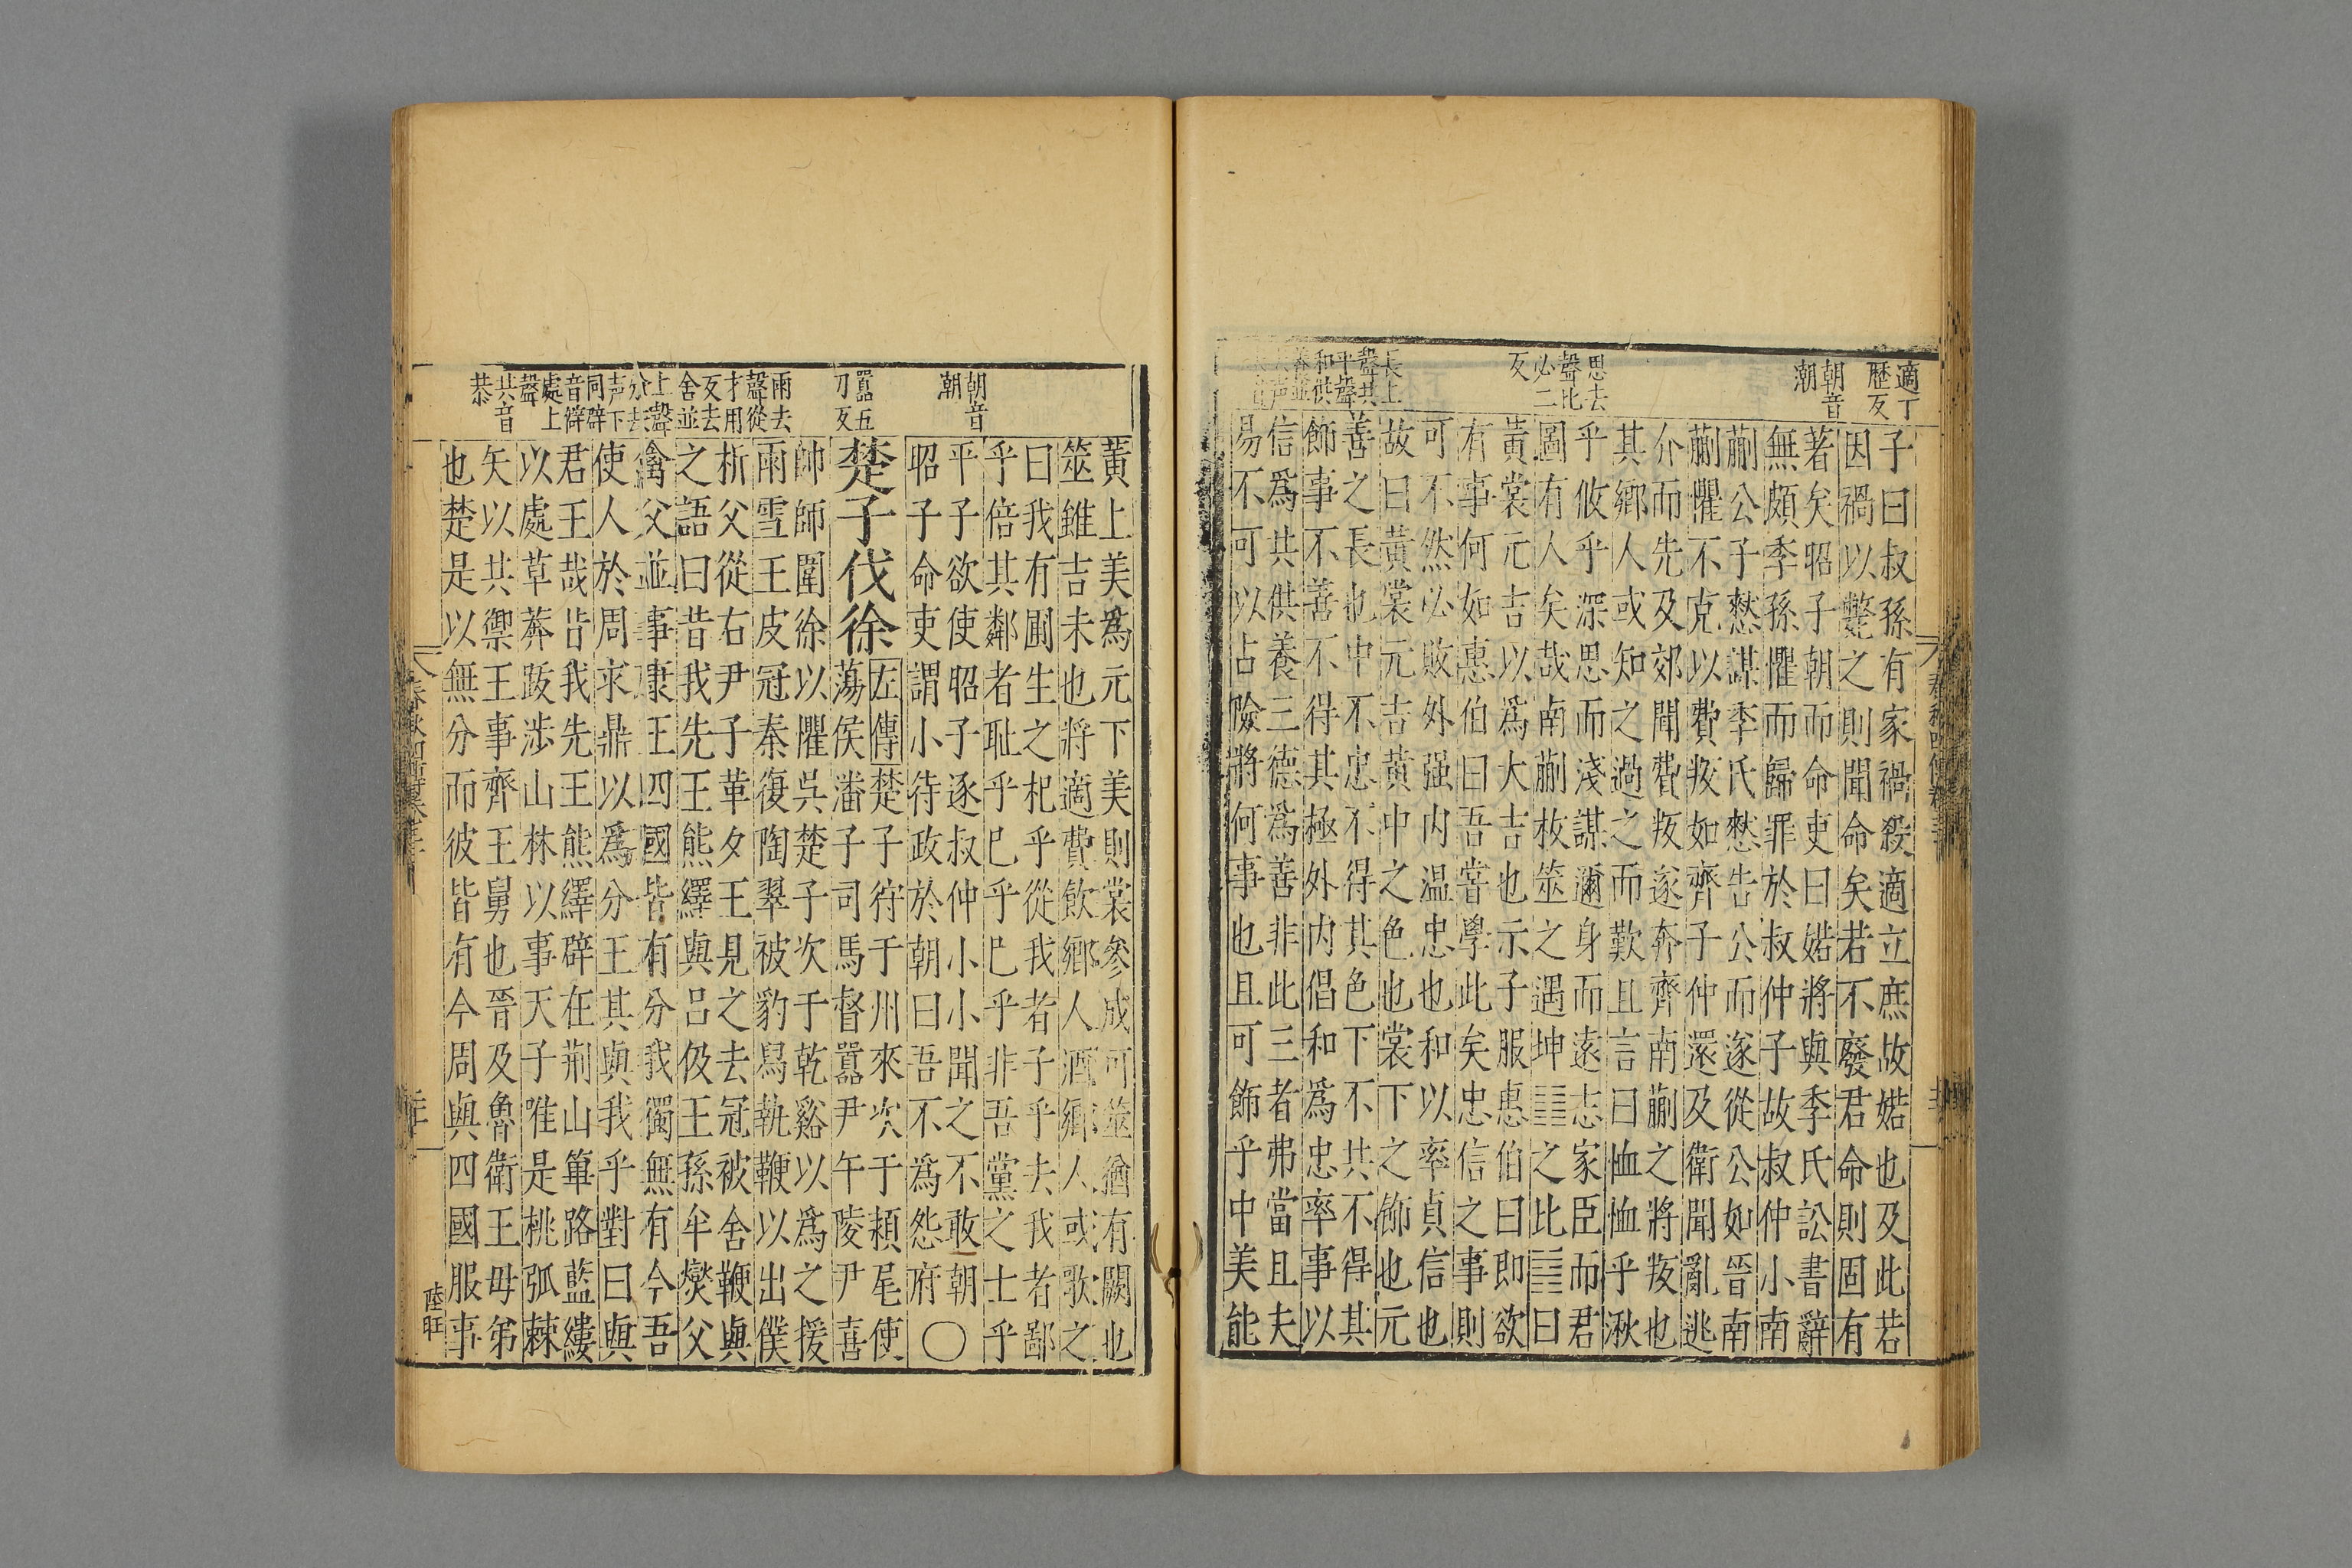 適丁
歷反
朝音
潮
思去
聲比
必二
反
長上
聲共
平聲
和供
養並
子曰叔孫有家禍殺適立庶故婼也及此若
因禍以斃之則聞命矣若不廢君命則固有
著矣昭子朝而命吏曰婼將與季氏訟書辭
無頗季孫懼而歸罪於叔仲子故叔仲小南
蒯公子憖謀季氏憖告公而遂從公如晉南
蒯懼不克以費叛如齊子仲還及衛聞亂逃
介而先及郊聞費叛遂奔齊南蒯之將叛也
其鄉人或知之過之而歎且言曰恤恤乎湫
乎攸乎深思而淺謀邇身而遠志家臣而君
圖有人矣哉南蒯枚筮之遇坤䷁之比䷇曰
黃裳元吉以為大吉也示子服惠伯曰即欲
有事何如惠伯曰吾嘗學此矣忠信之事則
可不然必敗外强内温忠也和以率貞信也
故曰黃裳元吉黃中之色也裳下之飾也元
善之長也中不忠不得其色下不共不得其
飾事不善不得其極外内倡和為忠率事以
信為共供養三德為善非此三者弗當且夫
易不可以占險將何事也且可飾乎中美能
黃上美為元下美則裳參成可筮猶有闕也
筮雖吉未也將適費飲鄉人酒鄉人或歌之
曰我有圃生之杞乎從我者子乎去我者鄙
乎倍其鄰者耻乎已乎已乎非吾黨之士乎
平子欲使昭子逐叔仲小小聞之不敢朝
昭子命吏謂小待政於朝曰吾不為怨府〇
朝音
潮
囂五
刀反
雨去
聲從
才用
反去
舍並
上聲
分去
声下
同辟
音僻
處上
聲
共音
恭
楚子伐徐
左傳楚子狩于州來次于潁尾使
蕩侯潘子司馬督囂尹午陵尹喜
帥師圍徐以懼吳楚子次于乾谿以為之援
雨雪王皮冠秦復陶翠被豹舄執鞭以出僕
析父從右尹子革夕王見之去冠被舍鞭與
之語曰昔我先王熊繹與呂伋王孫牟燮父
禽父並事康王四國皆有分我獨無有今吾
使人於周求鼎以為分王其與我乎對曰與
君王哉昔我先王熊繹辟在荆山篳路藍縷
以處草莽跋涉山林以事天子唯是桃弧棘
矢以共禦王事齊王舅也晉及魯衛王母弟
也楚是以無分而彼皆有今周與四國服事
陸旺